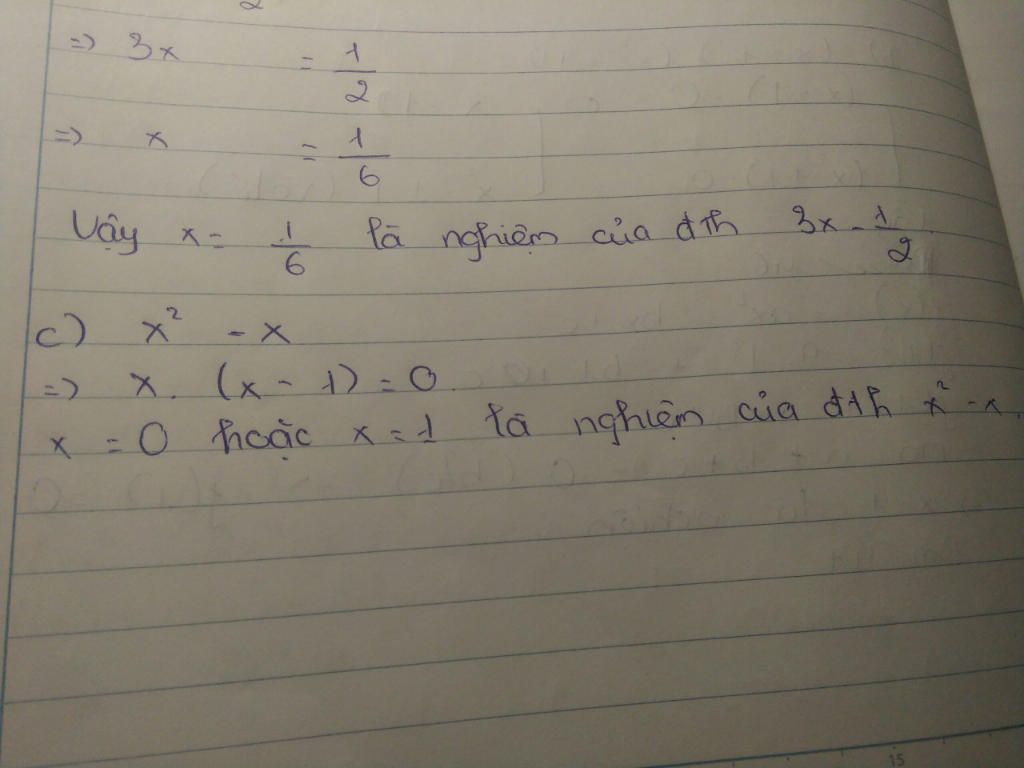 2
=> 3x = 1/2
=> x = 1/6
Vậy x = 1/6 là nghiệm của đth 3x - 1/2
c) x² - x
=> x. (x - 1) = 0.
x = 0 hoặc x = 1 là nghiệm của đth x² - x.
15